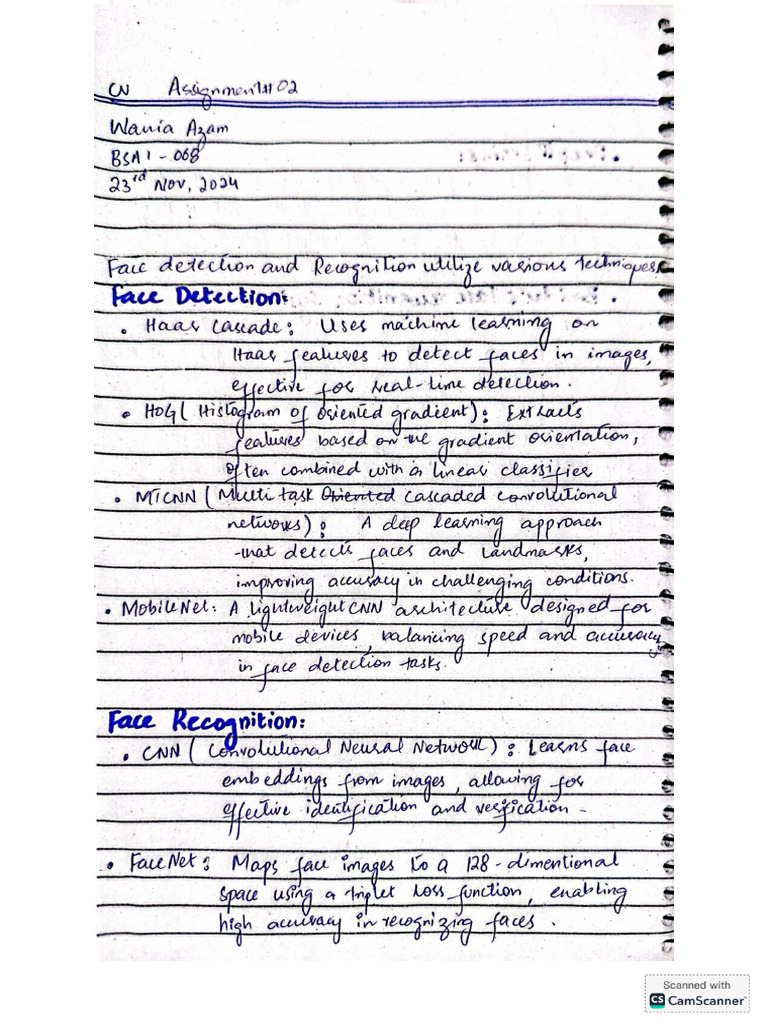 CV Assignment# 02
Wania Azam
BSAI - 068
23rd Nov, 2024
Face detection and Recognition utilize various techniques.
Face Detection:
• Haar Cascade: Uses machine learning on
Haar features to detect faces in images,
effective for real-time detection.
• HOG (Histogram of oriented gradient): Extracts
features based on the gradient orientation,
often combined with a linear classifier
• MTCNN (Multi task Oriented cascaded convolutional
networks): A deep learning approach
that detects faces and landmarks,
improving accuracy in challenging conditions.
• MobileNet: A lightweight CNN architecture designed for
mobile devices, balancing speed and accuracy
in face detection tasks.
Face Recognition:
• CNN (Convolutional Neural Network): Learns face
embeddings from images, allowing for
effective identification and verification.
• FaceNet: Maps face images to a 128-dimentional
space using a triplet loss function, enabling
high accuracy in recognizing faces.
Scanned with
CS CamScanner